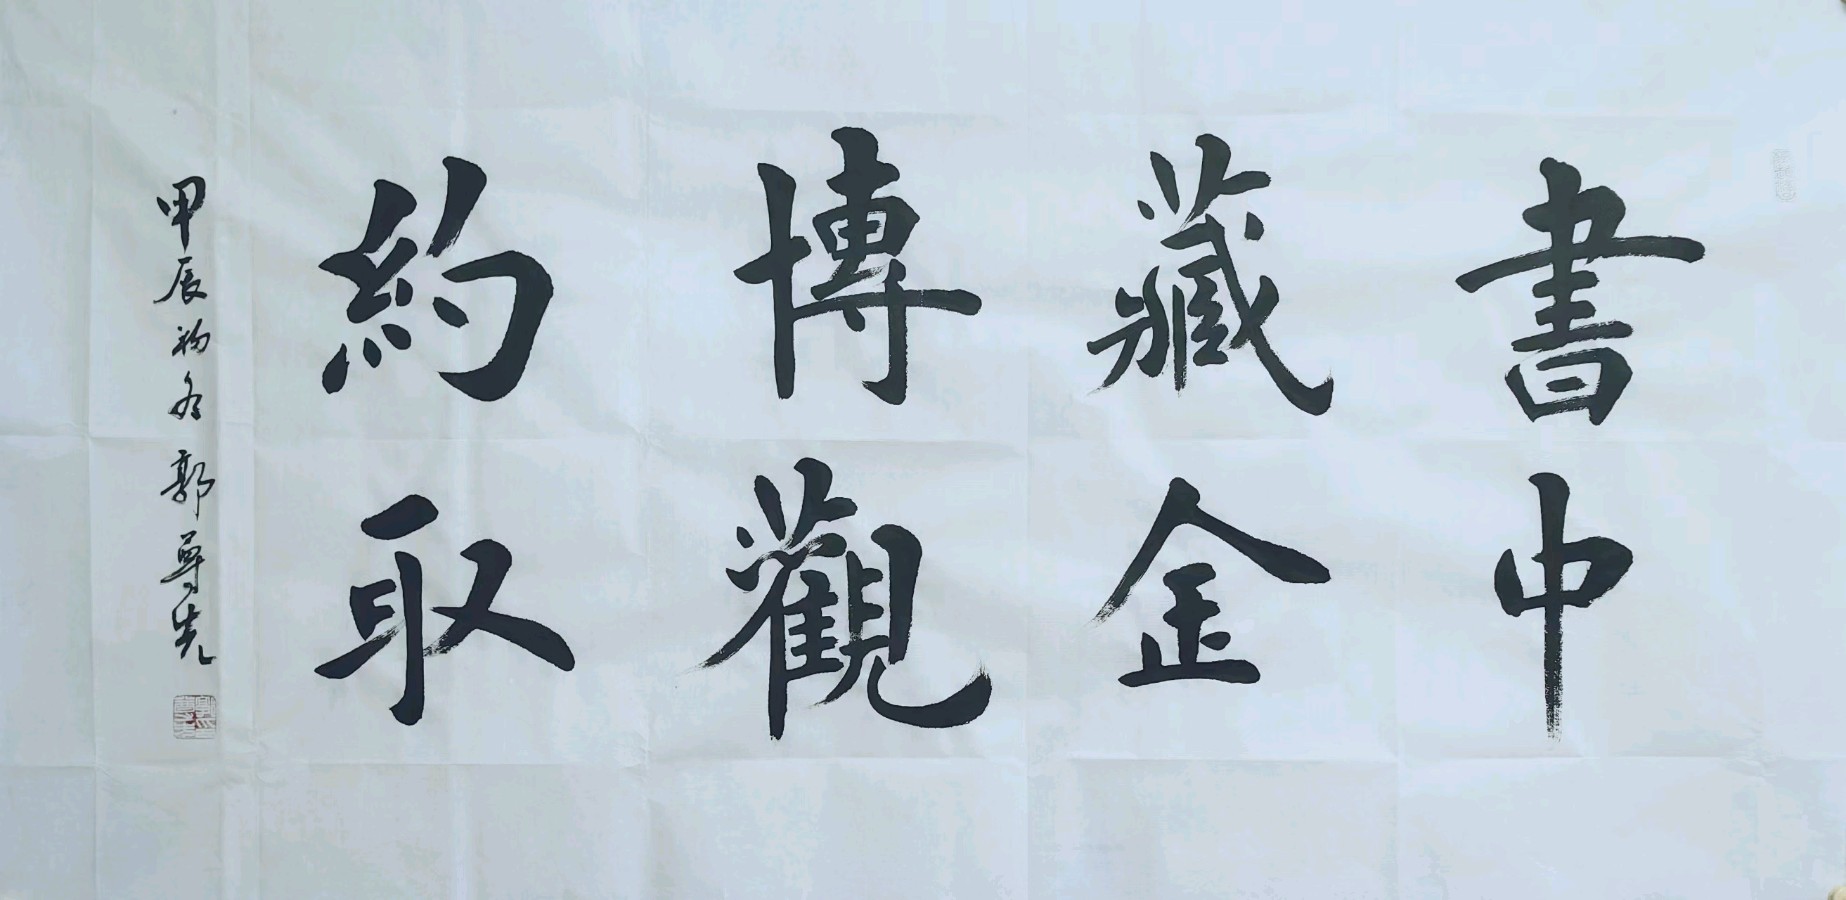 書中
藏金
博觀
約取
甲辰初冬郭尊先